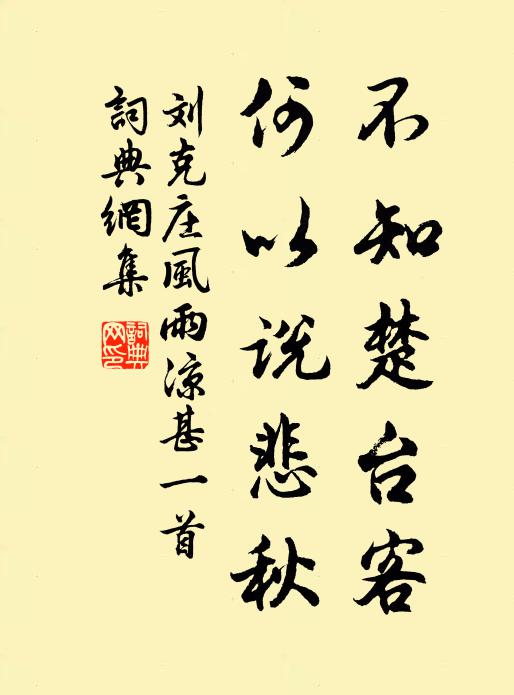 不知楚台客
何以说悲秋
刘克庄風雨凉甚一首
詞典網集
詞典網印